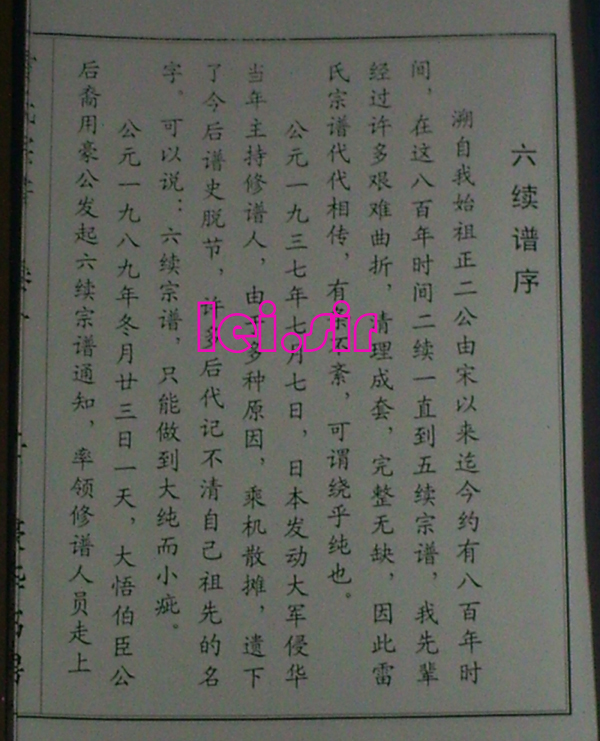 六续谱序
溯自我始祖正二公由宋以来迄今约有八百年时
间，在这八百年时间二续一直到五续宗谱，我先辈
经过许多艰难曲折，清理成套，完整无缺，因此雷
氏宗谱代代相传，有条不紊，可谓绕乎纯也。
公元一九三七年七月七日，日本发动大军侵华
当年主持修谱人，由于多种原因，乘机散摊，遗下
了今后谱史脱节，许多后代记不清自己祖先的名
字，可以说：六续宗谱，只能做到大纯而小疵。
公元一九八九年冬月廿三日一天，大悟伯臣公
后裔用豪公发起六续宗谱通知，率领修谱人员走上
lei.sir